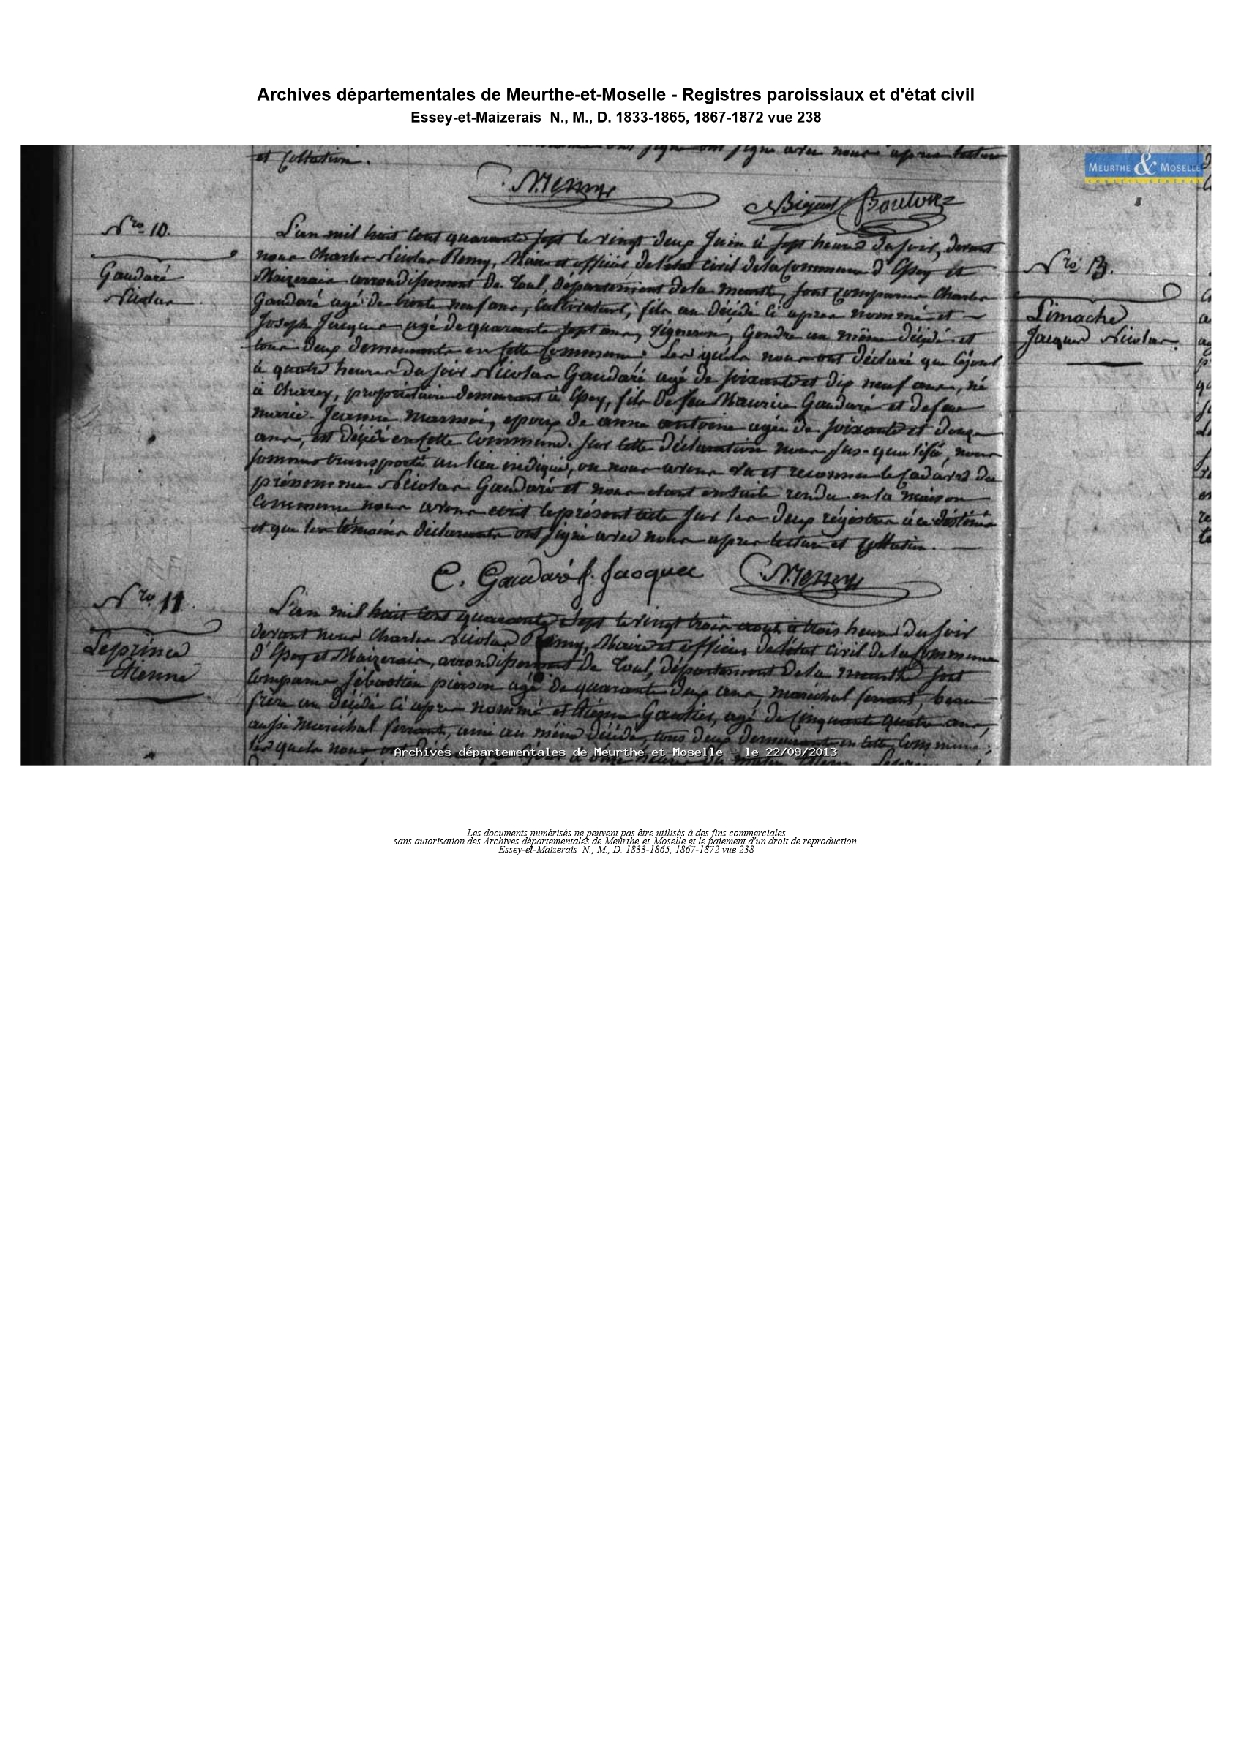 Archives départementales de Meurthe-et-Moselle - Registres paroissiaux et d'état civil
Essey-et-Maizerais N., M., D. 1833-1865, 1867-1872 vue 238
MEURTHE & MOSELLE
et collation.
N. Remy
Biquet Bouton
Nro 10.
Gaudaré
Nicolas
L'an mil huit cent quarante sept le vingt deux Juin à sept heures du soir, devant
nous Charles Nicolas Remy, Maire et officier de l'état civil de la Commune d'Essey et
Maizerais arrondissement de Toul, département de la meurthe, sont comparus Charles
Gaudaré agé de trente neuf ans, cultivateur, fils au décédé ci après nommé et
Joseph Jacques agé de quarante sept ans, vigneron, Gendre au même décédé et
tous deux demeurants en cette Commune. Lesquels nous ont déclaré que cejourd
à quatre heures du soir Nicolas Gaudaré agé de soixante et dix neuf ans, né
à Charey, propriétaire demeurant à Essey, fils de feu Maurice Gaudaré et de feue
marie Jeanne, epoux de anne antoine agée de soixante et douze
ans, est décédé en cette Commune. Sur cette déclaration nous sus-qualifié, nous
sommes transporté au lieu indiqué, ou nous avons vu et reconnu le cadavre du
prénommé Nicolas Gaudaré et nous etant ensuite rendu en la maison
Commune nous avons écrit le présent acte sur les deux régistres à ce destinés
et que les témoins déclarants ont signé avec nous après lecture et collation.
C. Gaudaré J. Jacques N. Remy
Nro 11.
Leprince
Etienne
L'an mil huit cent quarante sept le vingt trois aout à trois heures du soir
devant nous Charles Nicolas Remy, Maire et officier de l'état civil de la Commune
d'Essey et Maizerais, arrondissement de Toul, département de la meurthe sont
comparus Sébastien pierson agé de quarante deux ans, maréchal ferrant, beau
frère au décédé ci après nommé et Gautier, agé de cinquante quatre ans,
aussi maréchal ferrant, ami au même décédé, tous deux demeurant en cette Commune,
lesquels nous
Nro 13.
Limache
Jacques Nicolas.
Archives départementales de Meurthe et Moselle - le 22/09/2013
Les documents numérisés ne peuvent pas être utilisés à des fins commerciales
sans autorisation des Archives départementales de Meurthe et Moselle et le paiement d'un droit de reproduction
Essey-et-Maizerais N., M., D. 1833-1865, 1867-1872 vue 238